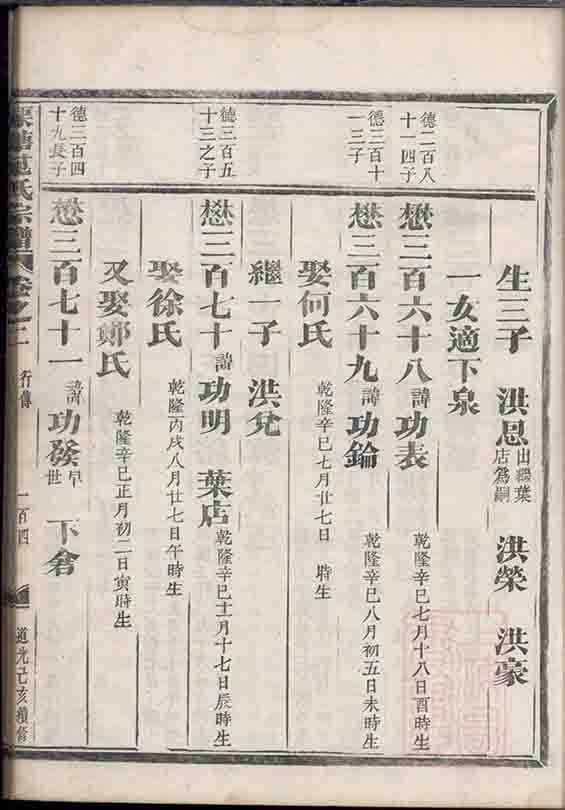 生三子 洪恩出繼葉店爲嗣 洪榮 洪豪
一女適下泉
德二百八十一四子
懋三百六十八 諱功表 乾隆辛巳七月十八日酉時生
德三百十一三子
懋三百六十九 諱功錀 乾隆辛巳八月初五日未時生
娶何氏 乾隆辛巳七月廿七日 時生
繼一子 洪兌
德三百五十三之子
懋三百七十 諱功明 葉店 乾隆辛巳十一月十七日辰時生
娶徐氏 乾隆丙戌八月廿七日午時生
又娶鄭氏 乾隆辛巳正月初二日寅時生
德三百四十九長子
懋三百七十一 諱功發 早世 下舍
范氏宗譜 卷之二 行傳 一百四 道光己亥續脩